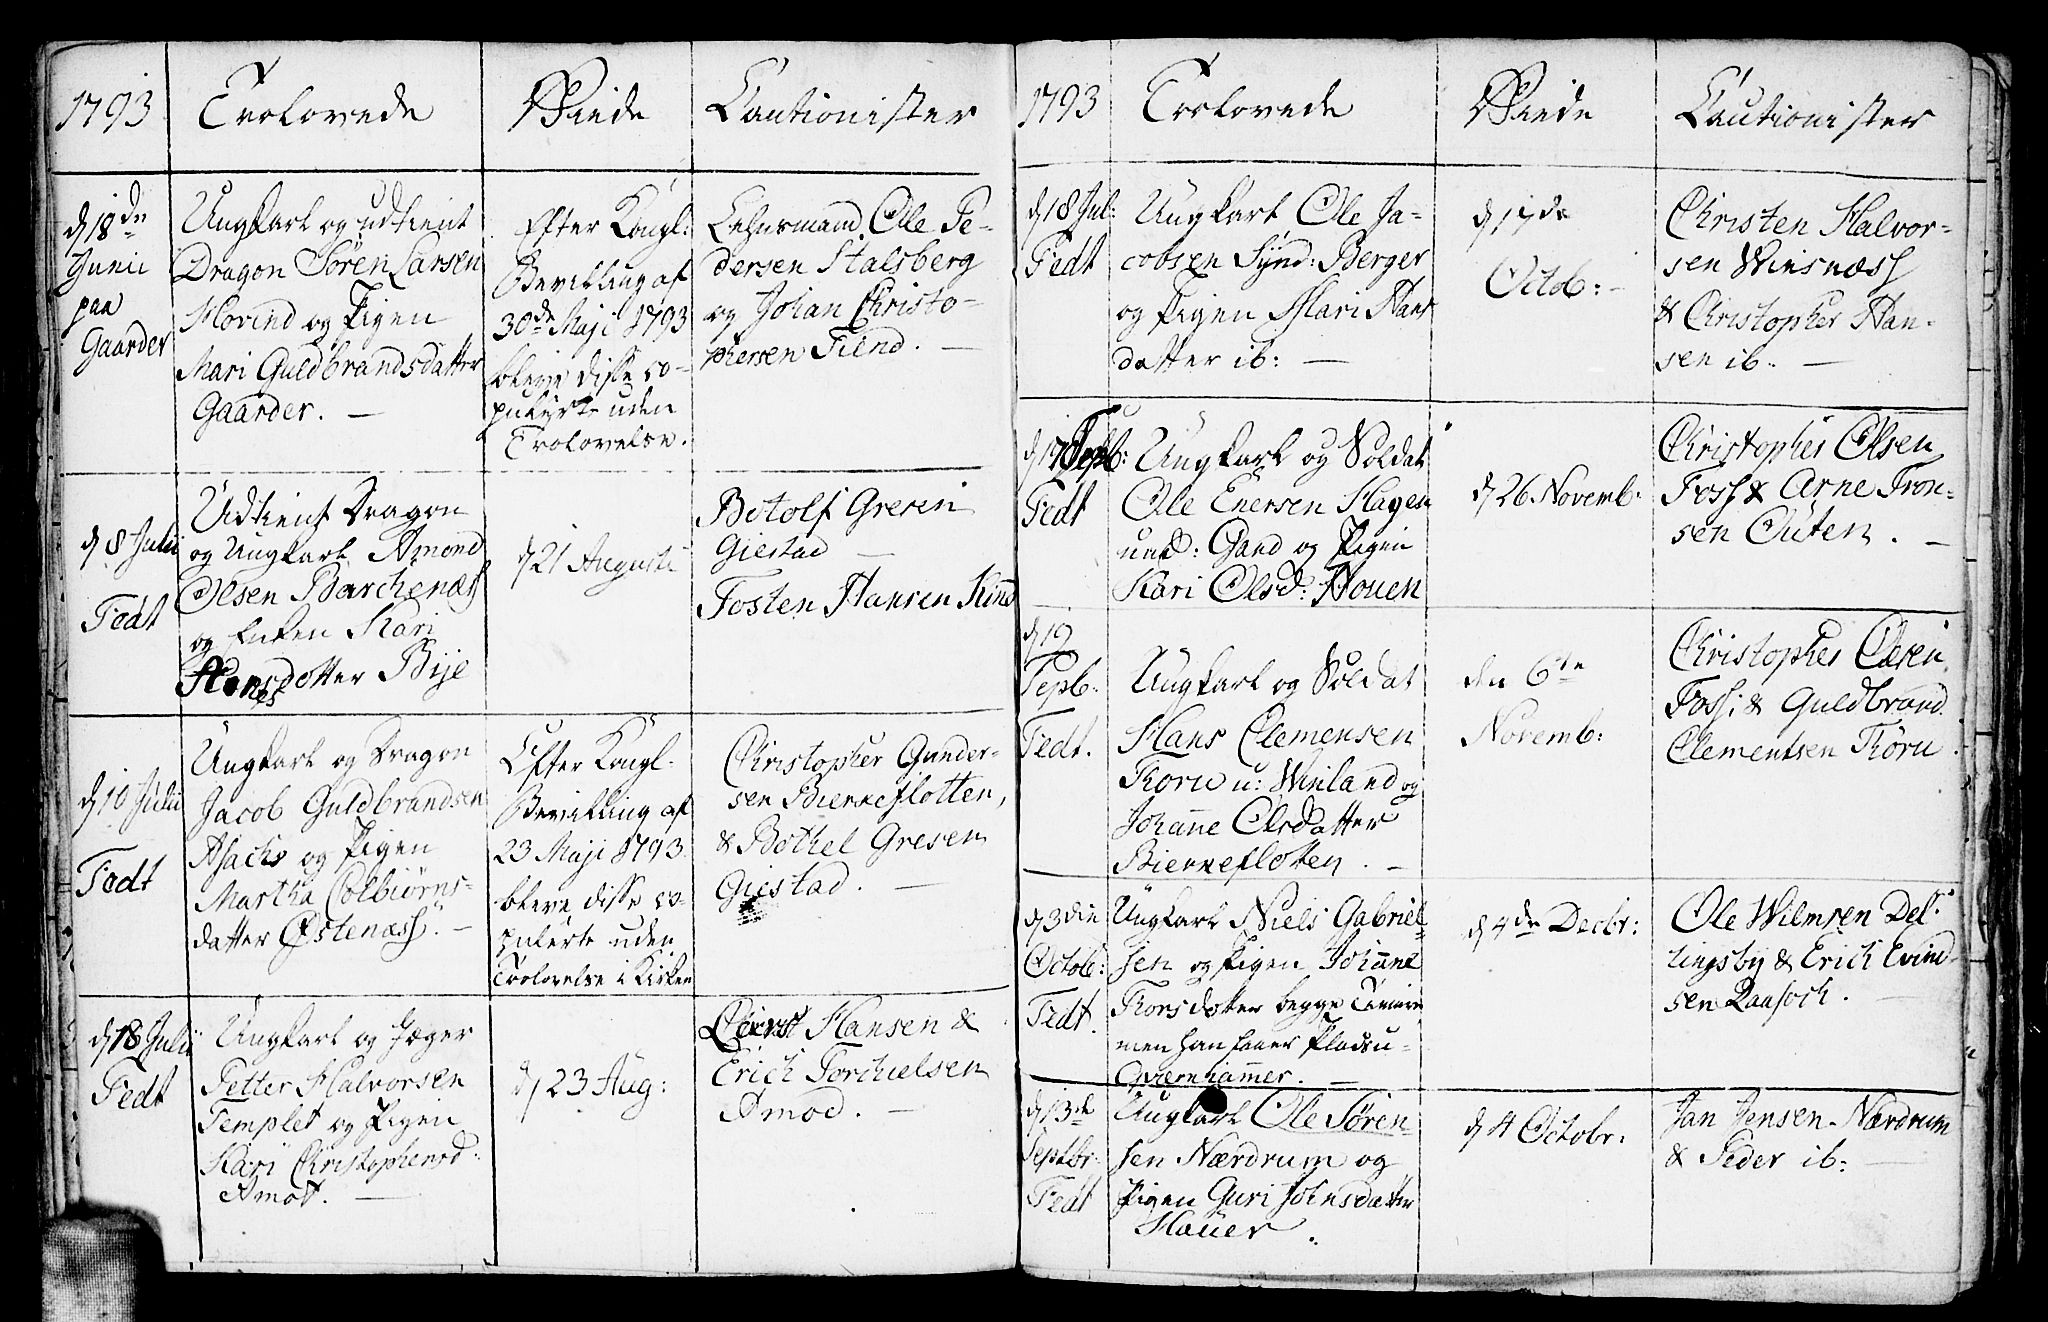 1793
Trolovede
Viede
Cautionister
d 18de
Junii
paa
Gaarder
Ungkarl og udtient
Dragon Sören Larsen
Hovind og Pigen
Mari Guldbrandsdatter
Gaarder. —
Efter Kongl:
Bevilling af
30de Maji 1793
bleve disse co-
pulerte uden
Trolovelse.
Lehnsmand Ole Pe-
dersen Stalsberg
og Johan Christo-
phersen Tiend. —
d 8 Julii
Fedt
Udtient Dragon
og Ungkarl Amond
Olsen Barchenæss
og Enken Kari
Hansdatter Bije
d 21 Augusti
Botolf Greren
Giestad —
Tosten Hansen Kind
d 10 Julii
Fedt
Ungkarl og Dragon
Jacob Guldbrandsen
Asachs og Pigen
Martha Colbiörns-
datter Östenæss. —
Efter Kongl.
Bevilling af
23 Maji 1793
bleve disse co-
pulerte uden
Trolovelse i Kirken
Christopher Gunder-
sen Bierkeflotten,
& Bothel Gresen
Giestad. —
d 18 Julii
Fedt
Ungkarl og Jæger
Petter Halvorsen
Templet og Pigen
Kari Christophersd:
Amot. —
d 23 Aug:
Hansen &
Erich Torchielsen
Amod. —
1793
Trolovede
Viede
Cautionister
d 18 Jul:
Fedt
Ungkarl Ole Ja-
cobsen Synd: Berger
og Pigen Mari Hans
datter ib: —
d 17de
Octob: —
Christen Halvor-
sen Winsnæss
& Christopher Han-
sen ib. —
d 17 Sepb:
Fedt
Ungkarl og Soldat
Ole Enersen Hagen
und: Gand og Pigen
Kari Olsd: Houen
d 26 Novemb.
Christopher Olsen
Foss & Arne Tron-
sen Outen. —
d 19
Sepb:
Fedt.
Ungkarl og Soldat
Hans Clemensen
Toru u: Winland og
Johanne Olsdatter
Bierkeflotten. —
den 6te
Novemb:
Christopher Olsen
Foss: & Guldbrand
Clementsen Töru.
d 3die
Octob:
Fedt.
Ungkarl Niels Gabriel-
sen og Pigen Johanne
Thorsdatter begge
men han faaer Plads u-
Qvernhammer. —
d 4de Decbr:
Ole Wilmsen Del-
lingsby & Erich Evind-
sen Raasoch. —
d 13de
Septbr:
Fedt
Ungkarl Ole Sören-
sen Nærdrum og
Pigen Guri Johnsdatter
Hauer.
d 4 Octobr:
Jan Jensen Nærdrum
& Peder ib: —